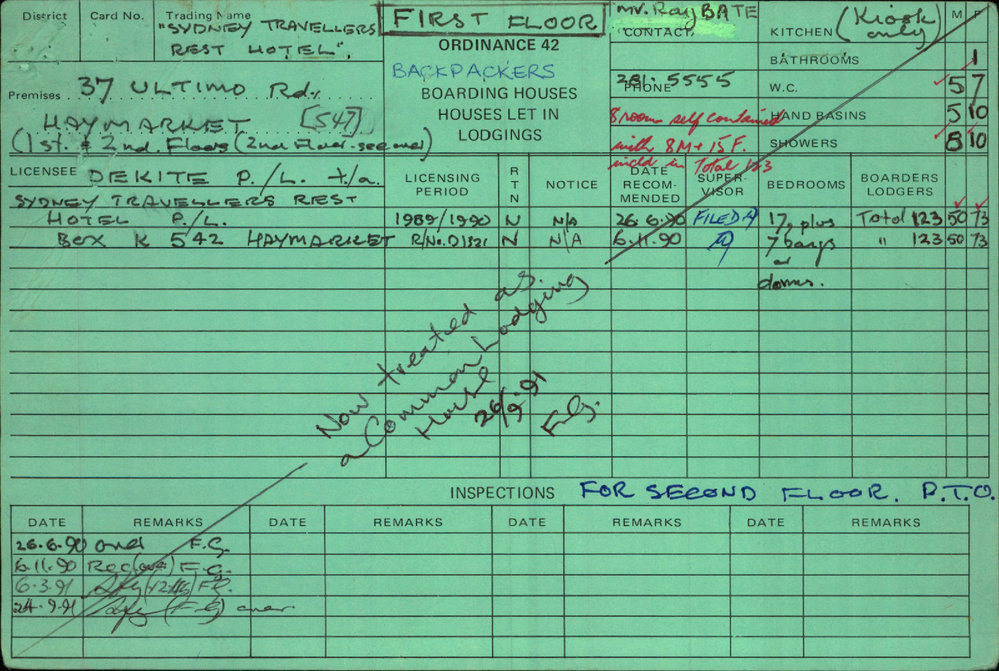 District
Card No.
Trading Name
"SYDNEY TRAVELLERS
REST HOTEL".
FIRST FLOOR
ORDINANCE 42
BACKPACKERS
BOARDING HOUSES
HOUSES LET IN
LODGINGS
Mr. Ray BATE
CONTACT
281. 5555
PHONE
8 room self contained
with 8M + 15 F.
incld in Total 123
KITCHEN (Kiosk only)
M F
BATHROOMS 1
W.C. 5 7
HAND BASINS 5 10
SHOWERS 8 10
Premises 37 ULTIMO Rd.
HAYMARKET [547]
(1st. & 2nd. Floors (2nd Floor - see over)
LICENSEE DEKITE P./L. t/a.
SYDNEY TRAVELLERS REST
HOTEL P./L.
BOX K 542 HAYMARKET
LICENSING PERIOD
RTN
NOTICE
DATE RECOMMENDED
SUPERVISOR
BEDROOMS
BOARDERS LODGERS
1989/1990 N N/A 26.6.90 FILED 17, plus Total 123 50 73
R/No. 01321 N N/A 6.11.90 7 " 123 50 73
dorms.
Now treated as
a Common Lodging
House
26/9.91
F.G.
INSPECTIONS FOR SECOND FLOOR. P.T.O.
DATE REMARKS DATE REMARKS DATE REMARKS DATE REMARKS
26.6.90 over F.G.
6.11.90 Rec (over) F.G.
6.3.91 F.G.
24.9.91 (F.G) over.